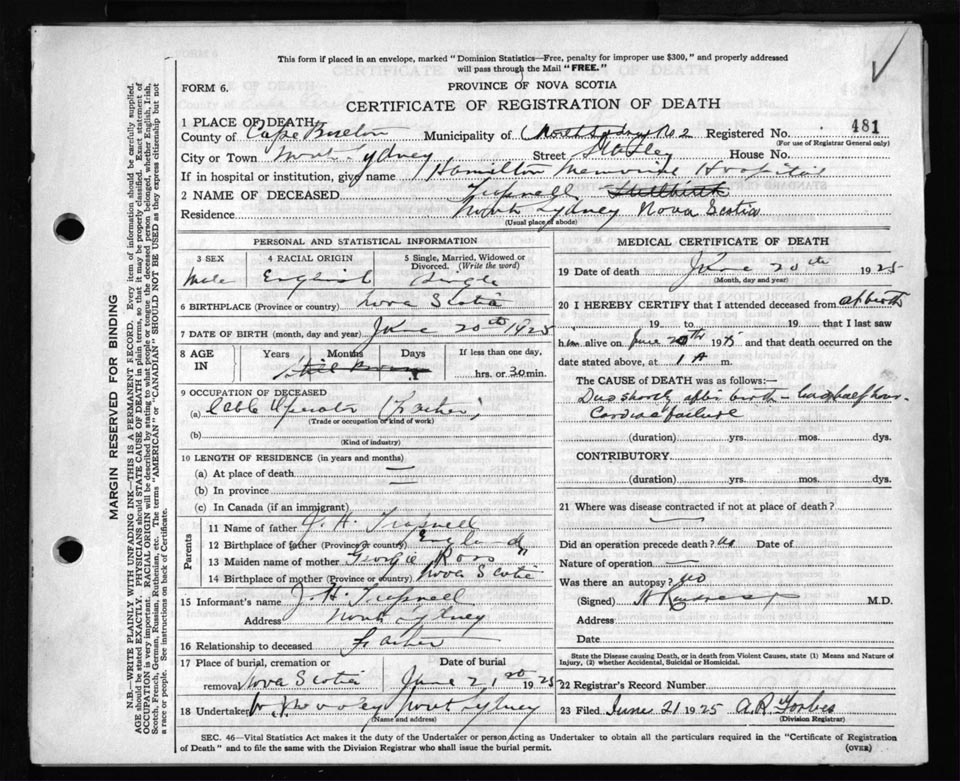 This form if placed in an envelope, marked "Dominion Statistics—Free, penalty for improper use $300," and properly addressed
will pass through the Mail "FREE."
FORM 6.
PROVINCE OF NOVA SCOTIA
CERTIFICATE OF REGISTRATION OF DEATH
1 PLACE OF DEATH
County of Cape Breton Municipality of North Sydney No 2 Registered No. 481
(For use of Registrar General only)
City or Town North Sydney Street House No.
If in hospital or institution, give name Hamilton Memorial Hospital
2 NAME OF DECEASED Trapnell Stillbirth
Residence North Sydney Nova Scotia
(Usual place of abode)
PERSONAL AND STATISTICAL INFORMATION
3 SEX 4 RACIAL ORIGIN 5 Single, Married, Widowed or Divorced. (Write the word)
Male English Single
6 BIRTHPLACE (Province or country) Nova Scotia
7 DATE OF BIRTH (month, day and year) June 20th 1925
8 AGE IN Years Months Days If less than one day,
Still Born hrs. or 30 min.
9 OCCUPATION OF DECEASED
(a) Cable Operator (Father)
(Trade or occupation or kind of work)
(b)
(Kind of industry)
10 LENGTH OF RESIDENCE (in years and months)
(a) At place of death
(b) In province
(c) In Canada (if an immigrant)
Parents
11 Name of father J. H. Trapnell
12 Birthplace of father (Province or country) England
13 Maiden name of mother Georgie Ross
14 Birthplace of mother (Province or country) Nova Scotia
15 Informant's name J. H. Trapnell
Address North Sydney
16 Relationship to deceased Father
17 Place of burial, cremation or removal Nova Scotia Date of burial June 21st 1925
18 Undertaker North Sydney
(Name and address)
MEDICAL CERTIFICATE OF DEATH
19 Date of death June 20th 1925
(Month, day and year)
20 I HEREBY CERTIFY that I attended deceased from at birth
19 to 19 that I last saw
him alive on June 20th 1925 and that death occurred on the
date stated above, at 1 A m.
The CAUSE of DEATH was as follows:—
Died shortly after birth - lived half hour.
Cardiac failure
(duration) yrs. mos. dys.
CONTRIBUTORY.
(duration) yrs. mos. dys.
21 Where was disease contracted if not at place of death?
Did an operation precede death? No Date of
Nature of operation —
Was there an autopsy? No
(Signed) M.D.
Address
Date
State the Disease causing Death, or in death from Violent Causes, state (1) Means and Nature of
Injury, (2) whether Accidental, Suicidal or Homicidal.
22 Registrar's Record Number
23 Filed June 21 1925 A. R. Forbes
(Division Registrar)
SEC. 46—Vital Statistics Act makes it the duty of the Undertaker or person acting as Undertaker to obtain all the particulars required in the "Certificate of Registration
of Death" and to file the same with the Division Registrar who shall issue the burial permit. (OVER)
MARGIN RESERVED FOR BINDING
N.B.—WRITE PLAINLY WITH UNFADING INK—THIS IS A PERMANENT RECORD. Every item of information should be carefully supplied.
AGE should be stated EXACTLY. PHYSICIANS should STATE CAUSE OF DEATH in plain terms, so that it may be properly classified. Exact statement of
OCCUPATION is very important. RACIAL ORIGIN will be described by stating to what people or tongue the deceased person belonged, whether English, Irish,
Scotch, French, German, Russian, Ruthenian, etc. The terms "AMERICAN" or "CANADIAN" SHOULD NOT BE USED as they express citizenship but not
a race or people. See instructions on back of Certificate.